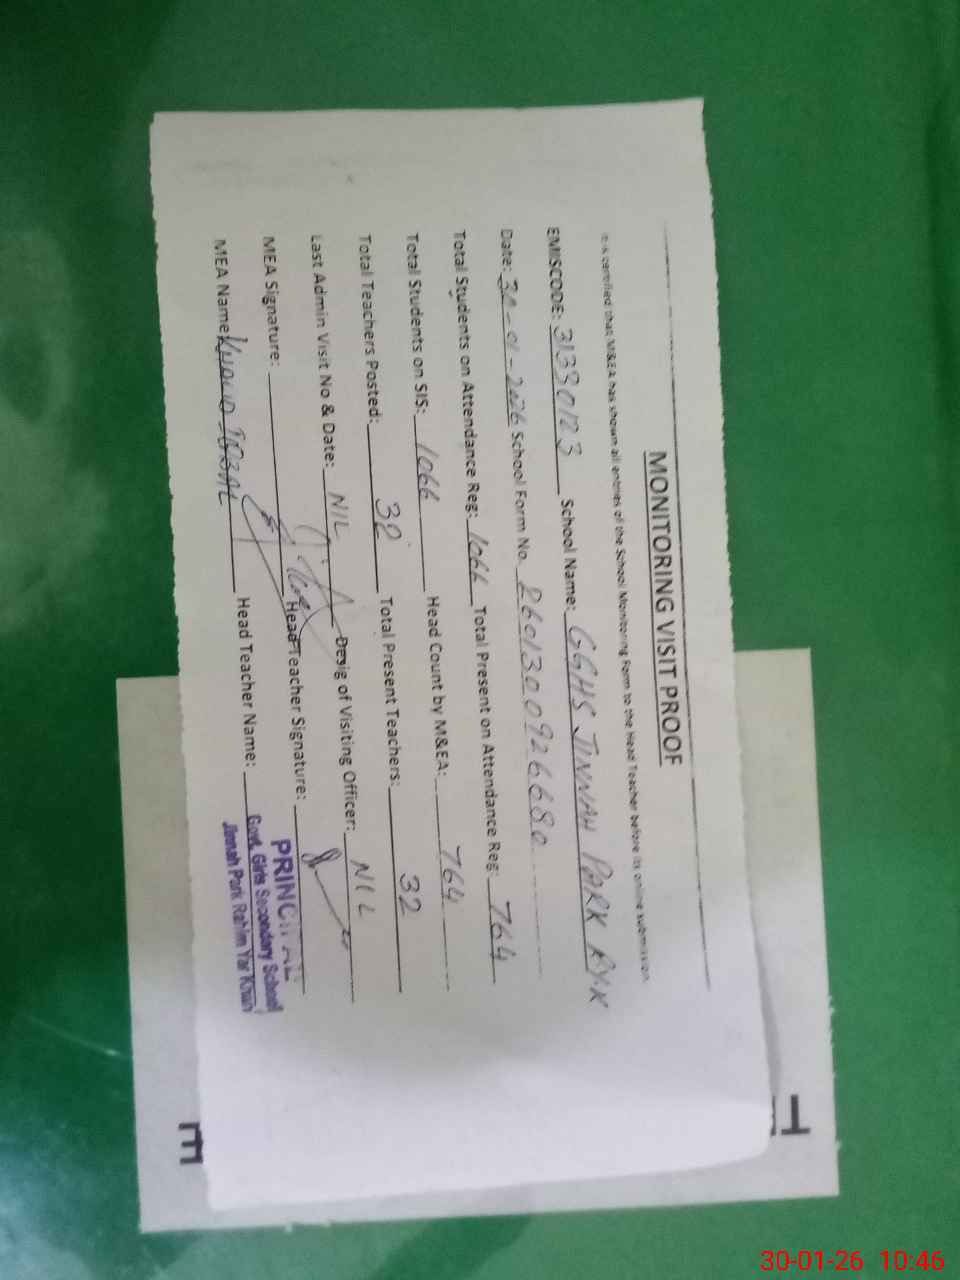 MONITORING VISIT PROOF
It is certified that M&EA has shown all entries of the School Monitoring Form to the Head Teacher before its online submission
EMISCODE: 31330123 School Name: GGHS JINNAH PARK RYK
Date: 30-01-2026 School Form No. 2601300926680
Total Students on Attendance Reg: 1066 Total Present on Attendance Reg: 764
Total Students on SIS: 1066 Head Count by M&EA: 764
Total Teachers Posted: 32 Total Present Teachers: 32
Last Admin Visit No & Date: NIL Desig of Visiting Officer: NIL
MEA Signature: Head Teacher Signature:
MEA Name IQBAL Head Teacher Name:
PRINCIPAL
Govt. Girls Secondary School
Jinnah Park Rahim Yar Khan
30-01-26 10:46